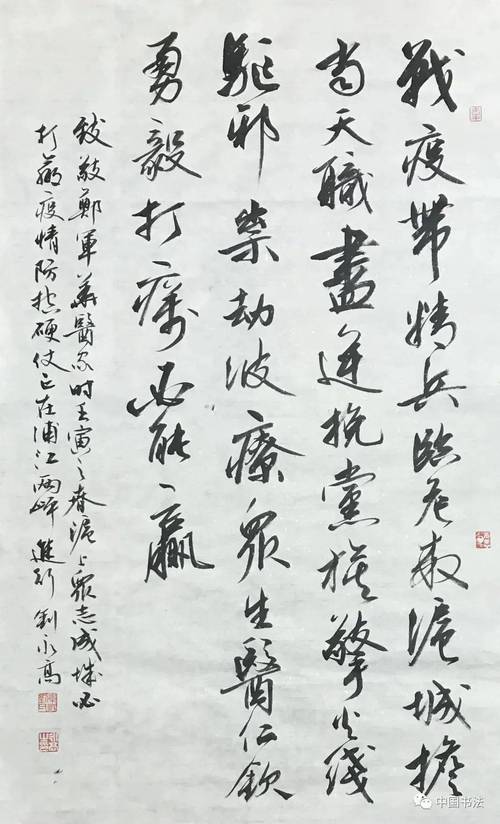 戰疫帶精兵臨危救滬城擔
當天職盡逆挽黨旗擎火线
駈邪祟劫波療眾生醫仁欽
勇毅打癘必能贏
致敬鄭軍華醫家时壬寅之春滬上眾志成城必
打赢疫情防控硬仗正在浦江兩岸進行 劉永高
中国书法